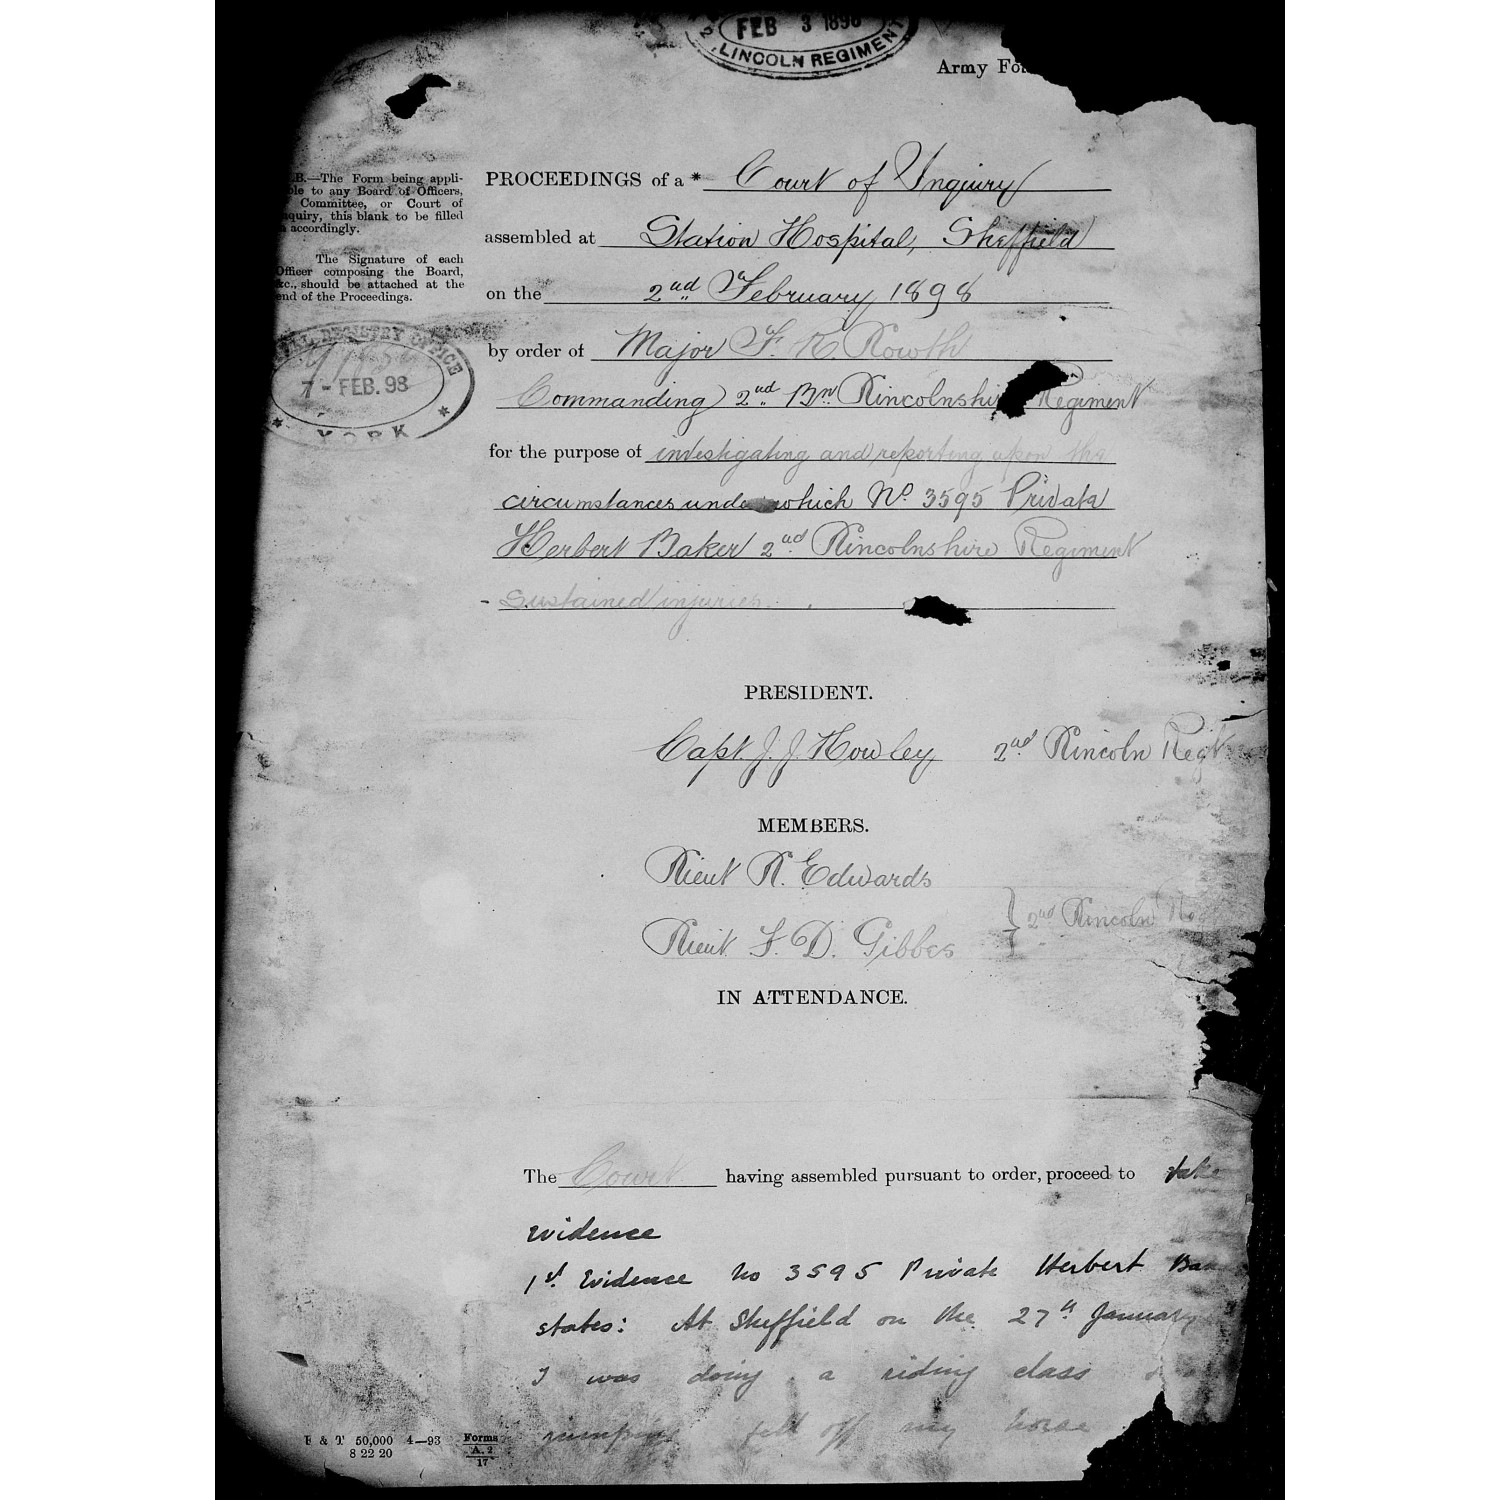 FEB 3 1898
2 LINCOLN REGIMENT
Army Fo
B.—The Form being appli-
ble to any Board of Officers,
Committee, or Court of
quiry, this blank to be filled
accordingly.
The Signature of each
Officer composing the Board,
&c., should be attached at the
end of the Proceedings.
REGISTRY OFFICE
7 - FEB. 98
* YORK *
PROCEEDINGS of a * Court of Inquiry
assembled at Station Hospital, Sheffield
on the 2nd February 1898
by order of Major F. R Lowth
Commanding 2nd Bn Lincolnshi Regiment
for the purpose of investigating and reporting upon the
circumstances unde which No 3595 Private
Herbert Baker 2nd Lincolnshire Regiment
sustained injuries.
PRESIDENT.
Capt. J. J. Howley 2nd Lincoln Regt
MEMBERS.
Lieut R. Edwards
Lieut F. D. Gibbes } 2nd Lincoln
IN ATTENDANCE.
The Court having assembled pursuant to order, proceed to take
evidence
1st Evidence No 3595 Private Herbert Ba
states: At Sheffield on the 27th January
I was doing a riding class
jumping fell off my horse
F & T 50,000 4—93 Forms
8 22 20 A. 2
17